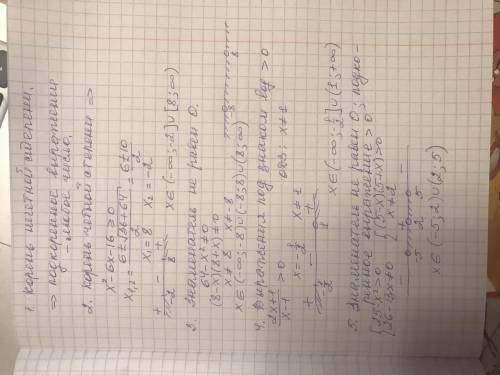 1. Корень нечетной степени.
⇒ подкоренное выражение
– любое число.
2. Корень четной степени ⇒
x² - 6x - 16 ≥ 0
x₁,₂ = (6 ± √(36+64))/2 = (6 ± 10)/2
x₁ = 8 x₂ = -2
+ - +
-2 8
x ∈ (-∞; -2] ∪ [8; ∞)
3. Знаменатель не равен 0.
64 - x² ≠ 0
(8-x)(8+x) ≠ 0
x ≠ 8 x ≠ -8
-8 8
x ∈ (-∞; -8) ∪ (-8; 8) ∪ (8; ∞)
4. Выражения под знаком log > 0
(2x+1)/(x-1) > 0 одз: x ≠ 1
x = -1/2 x ≠ 1
+ - +
-1/2 1
x ∈ (-∞; -1/2) ∪ (1; +∞)
5. Знаменатель не равен 0; подко-
ренное выражение > 0.
{25-x² > 0
{26-13x ≠ 0
{(5-x)(5+x) > 0
{x ≠ 2
- + + -
-5 2 5
x ∈ (-5; 2) ∪ (2; 5)